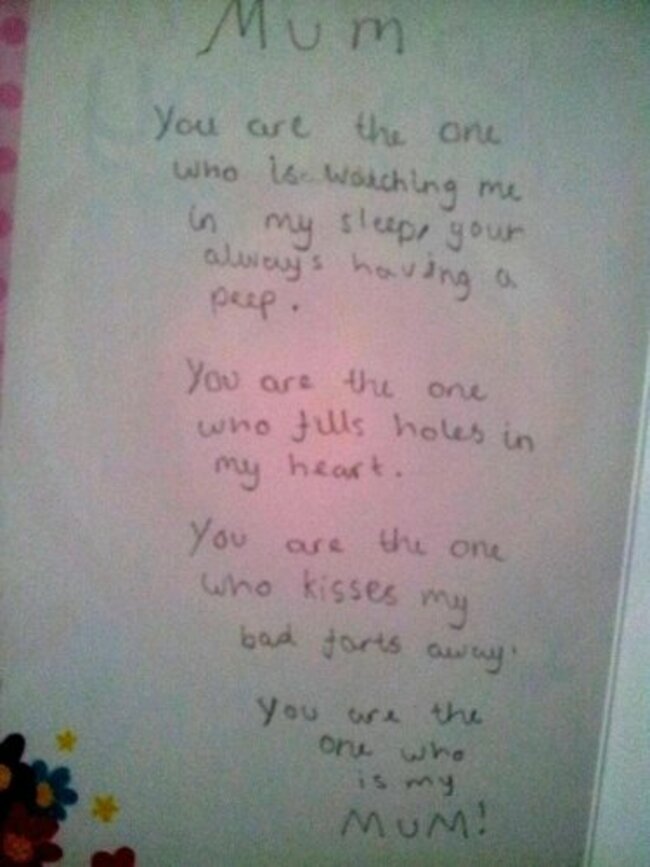 Mum
You are the one
who is watching me
in my sleep, your
always having a
peep.
You are the one
who fills holes in
my heart.
You are the one
who kisses my
bad farts away.
You are the
one who
is my
MUM!